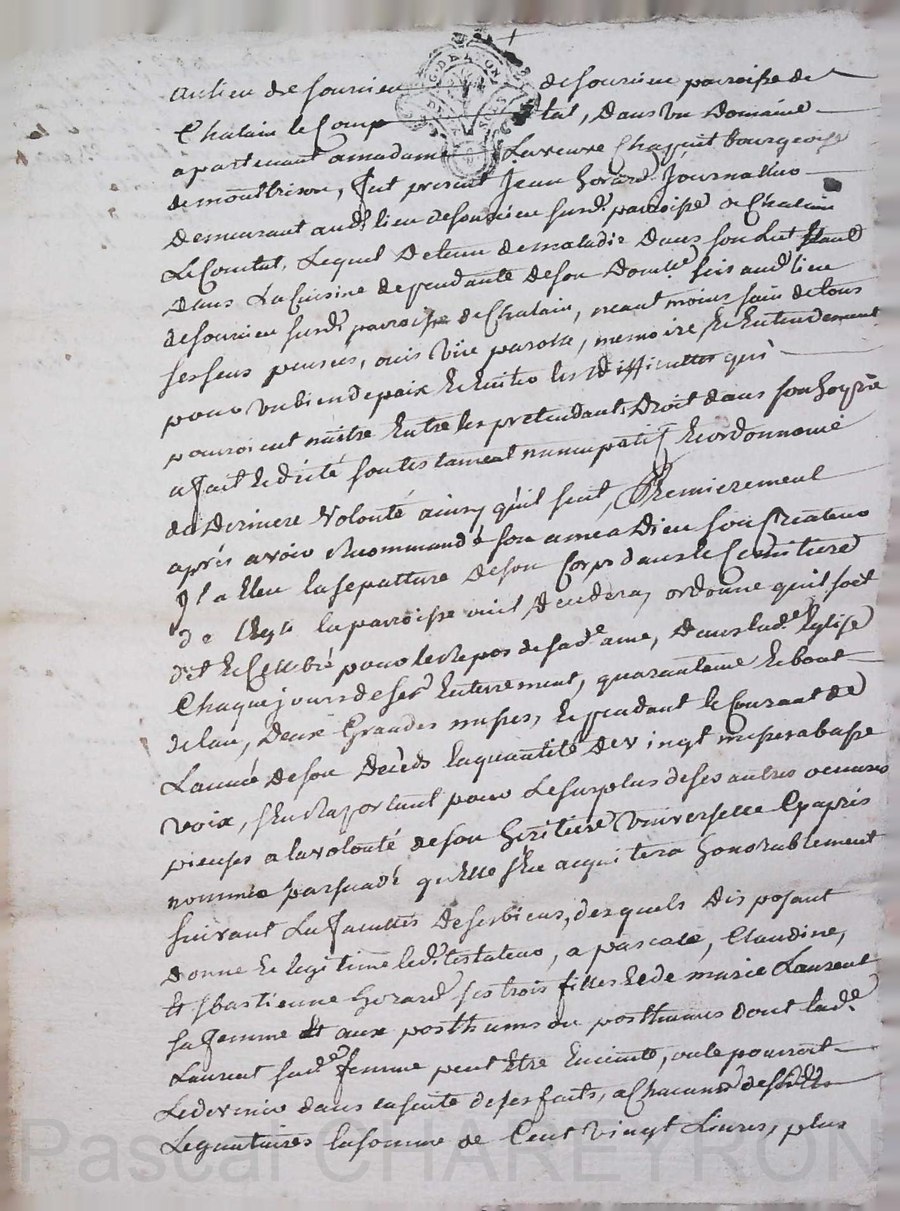 au lieu de Sourcieu de Sourcieu parroisse de
Chalain le Comtal, Dans un Domaine
apartenant a madame La veuve Chapuit bourgeoise
de montbrison, fut present Jean Gorard Journallier
Demeurant aud. lieu de Sourcieu surd. parroisse de Chalain
Le Comtal, Lequel Detenu de maladie Dans son Lit étant
Dans La Cuisine dependante de son Domlle scis aud. lieu
de Sourcieu surd. parroisse de Chalain, neantmoins sain de tous
ses sens pensées, ouis vüe parolle, memoire Et Entendement
pour un bien de paix Et Eviter les Difficultés qui
pourroient naitre Entre les pretendants Droit dans son hoyrie
a fait Et dicté son testament nuncupatif Et ordonnance
de Derniere Volonté ainsy qu'il suit, Premierement
aprés avoir Recommandé son ame a Dieu son Createur
Il a Eleu la sepulture de son Corps dans le Cemitiere
de l'Eglise la parroisse ou il Decedera, ordonne qu'il soit
dit Et Cellebré pour le Repos de sad. ame, Dans lad. Eglise
Chaque jours de ses Enterrement, quarantaine Et bout
de l'an, Deux Grandes messes, Et pendant le Courant de
L'année de son Decéds la quantité de vingt messes a basse
voix, s'en Raportant pour Le surplus de ses autres oeuvres
pieuses a la volonté de son heritiere Universelle Cy aprés
nommée persuadé qu'elle s'en acquitera honorablement
suivant La facultés De ses biens, desquels Disposant
Donne Et legitime led. testateur, a pascale, Claudine,
Et Sbastienne Gorard ses trois filles Et de marie Laurent
sa femme Et aux posthums ou posthumes Dont lad.
Laurent sad. femme peut Etre Enceinte, ou le pourroit
Le devenir dans la suite de ses faits, a Chacune desd.
Legataires la somme de Cent vingt Livres, plus
Pascal CHAREYRON